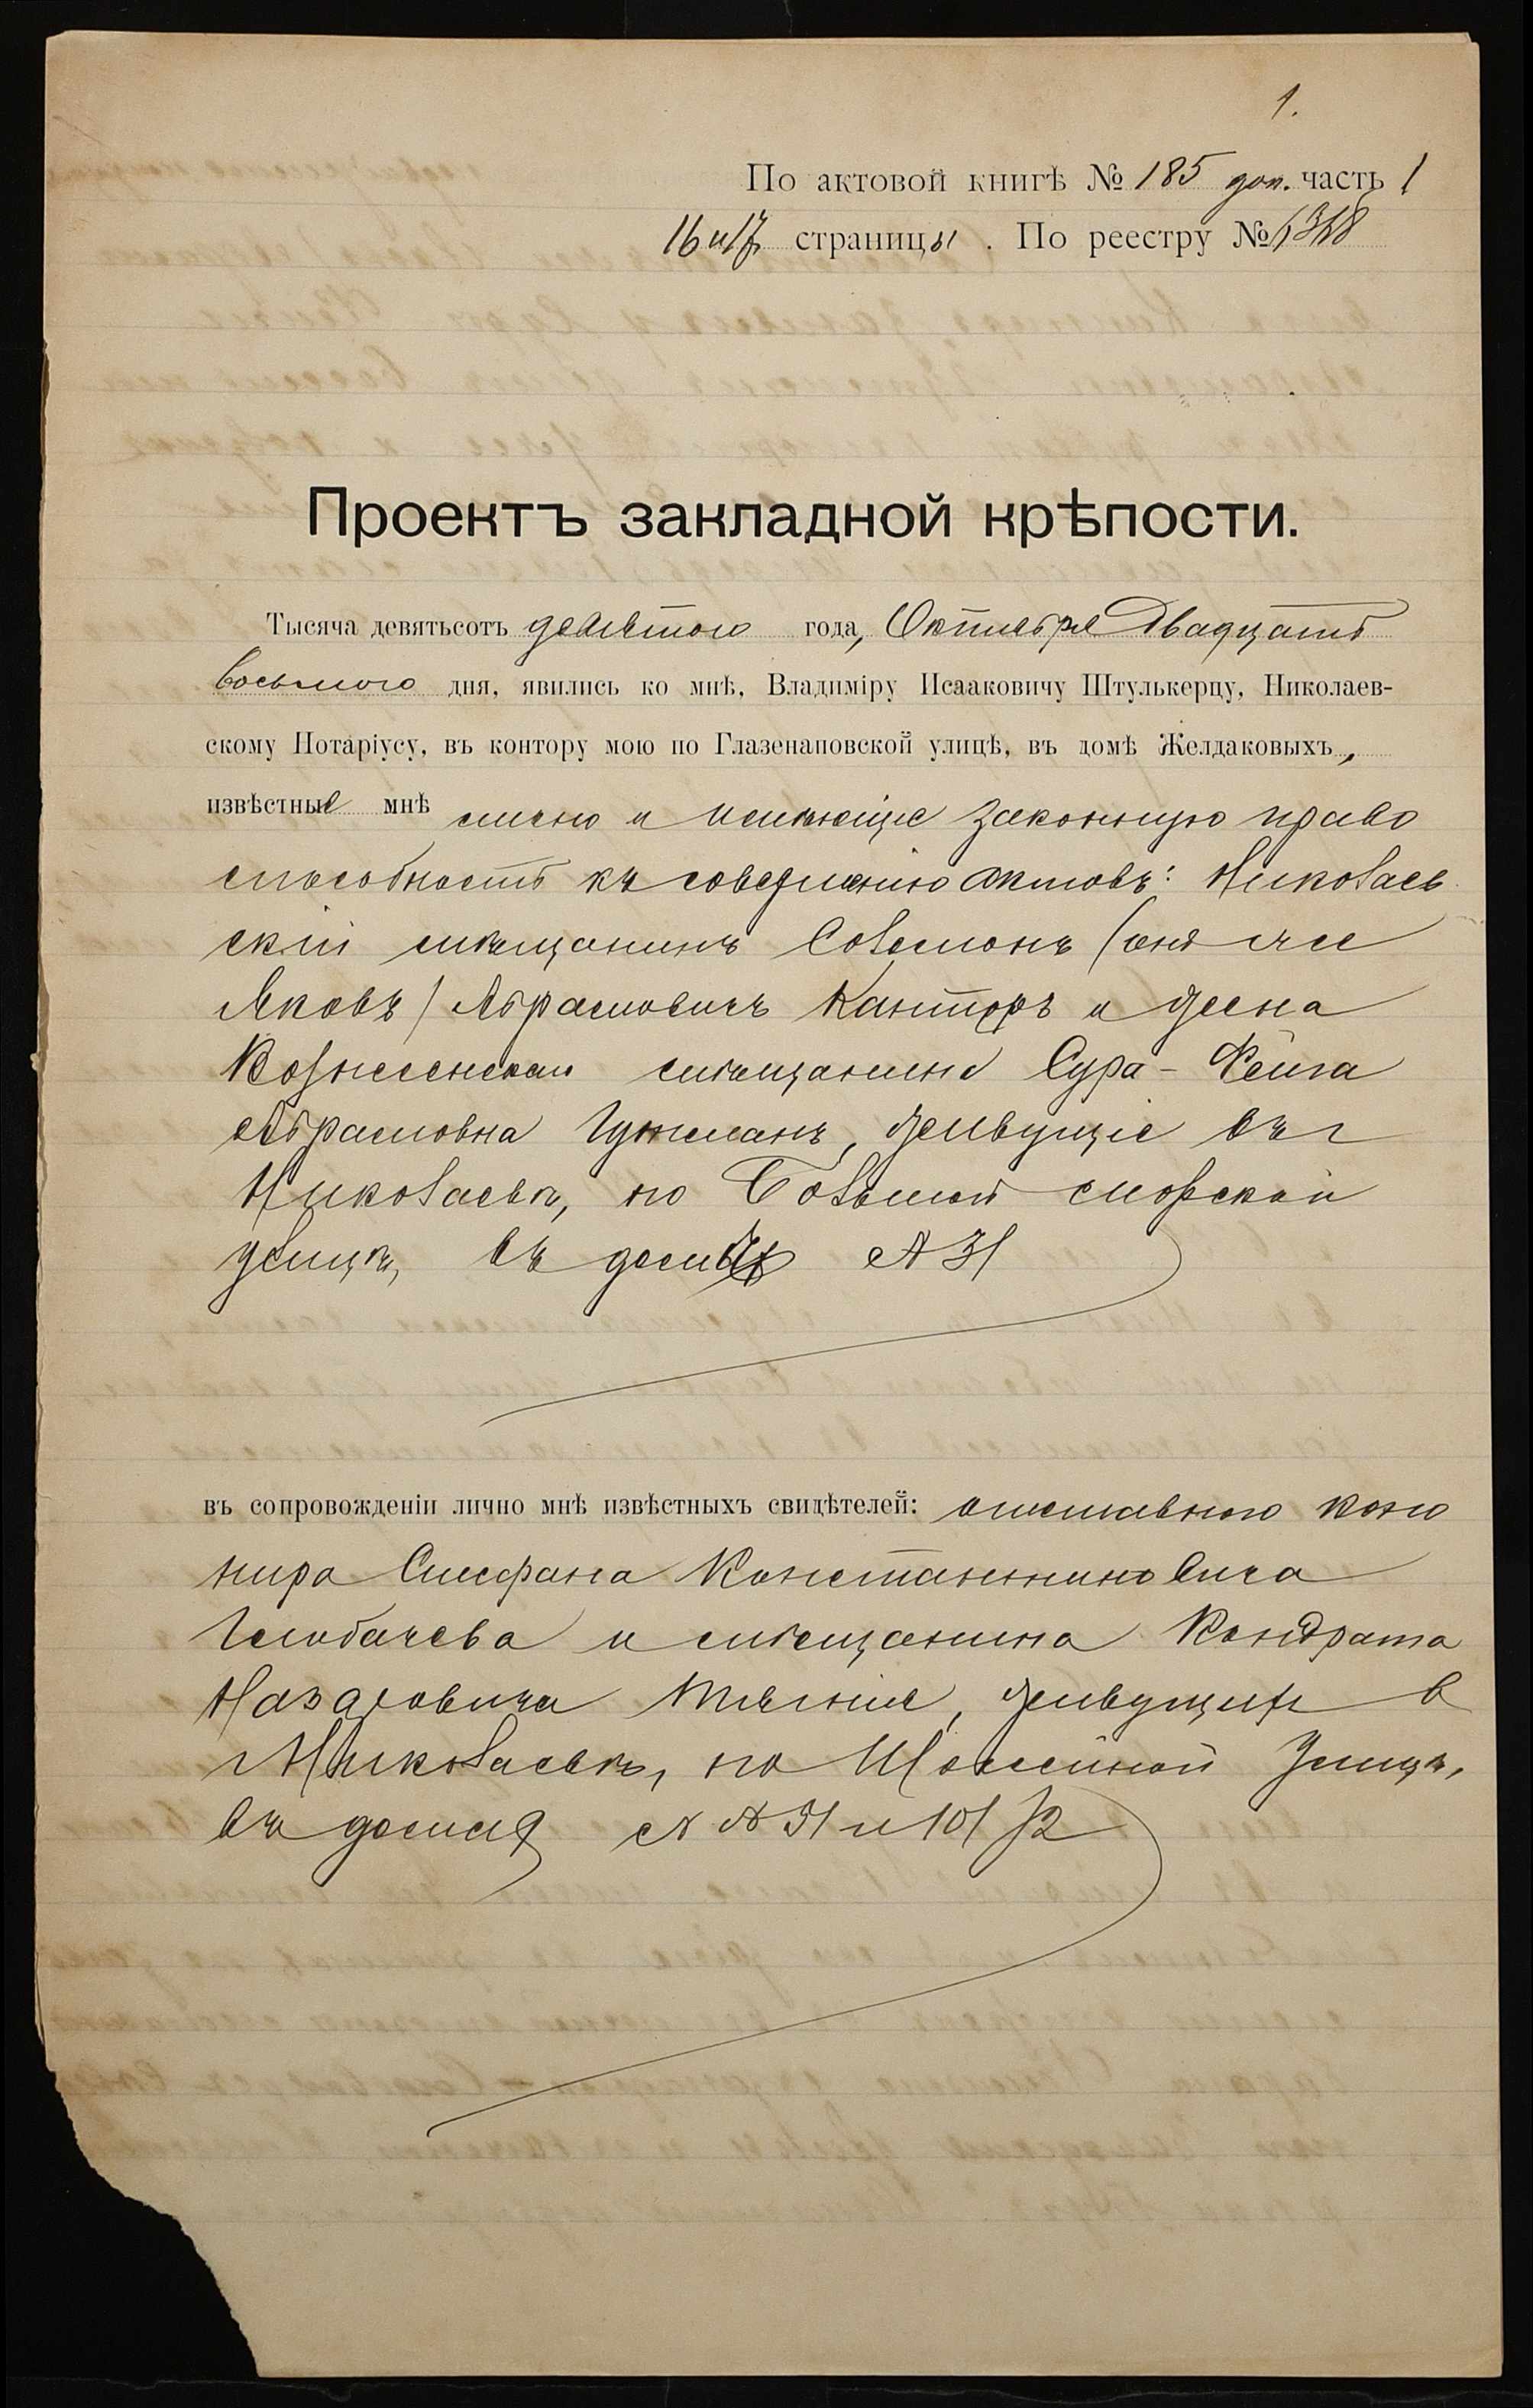 1.
По актовой книгѣ № 185 доп. часть 1
16 и 17 страницы . По реестру №
Проектъ закладной крѣпости.
Тысяча девятьсотъ девятого года, Октября Двадцать
восьмого дня, явились ко мнѣ, Владиміру Исааковичу Штулькерцу, Николаев-
скому Нотаріусу, въ контору мою по Глазенаповской улицѣ, въ домѣ Желдаковыхъ,
извѣстные мнѣ лично и имѣющіе законную право
способность къ совершенію актовъ: Николаев
скій мѣщанинъ Соломонъ (онъ же
Яковъ) Абрамовичъ Канторъ и жена
Вознесенскаго мѣщанина Сура-Фейга
Абрамовна Гужманъ, живущіе въ г
Николаевѣ, по Большой морской
улицѣ, въ домѣ № 31
въ сопровожденіи лично мнѣ извѣстныхъ свидѣтелей: отставного кано
нира Стефана Константиновича
и мѣщанина Кондрата
Назаровича живущихъ в
г Николаевѣ, по Шоссейной улицѣ,
въ домахъ № № 31 и 101/2